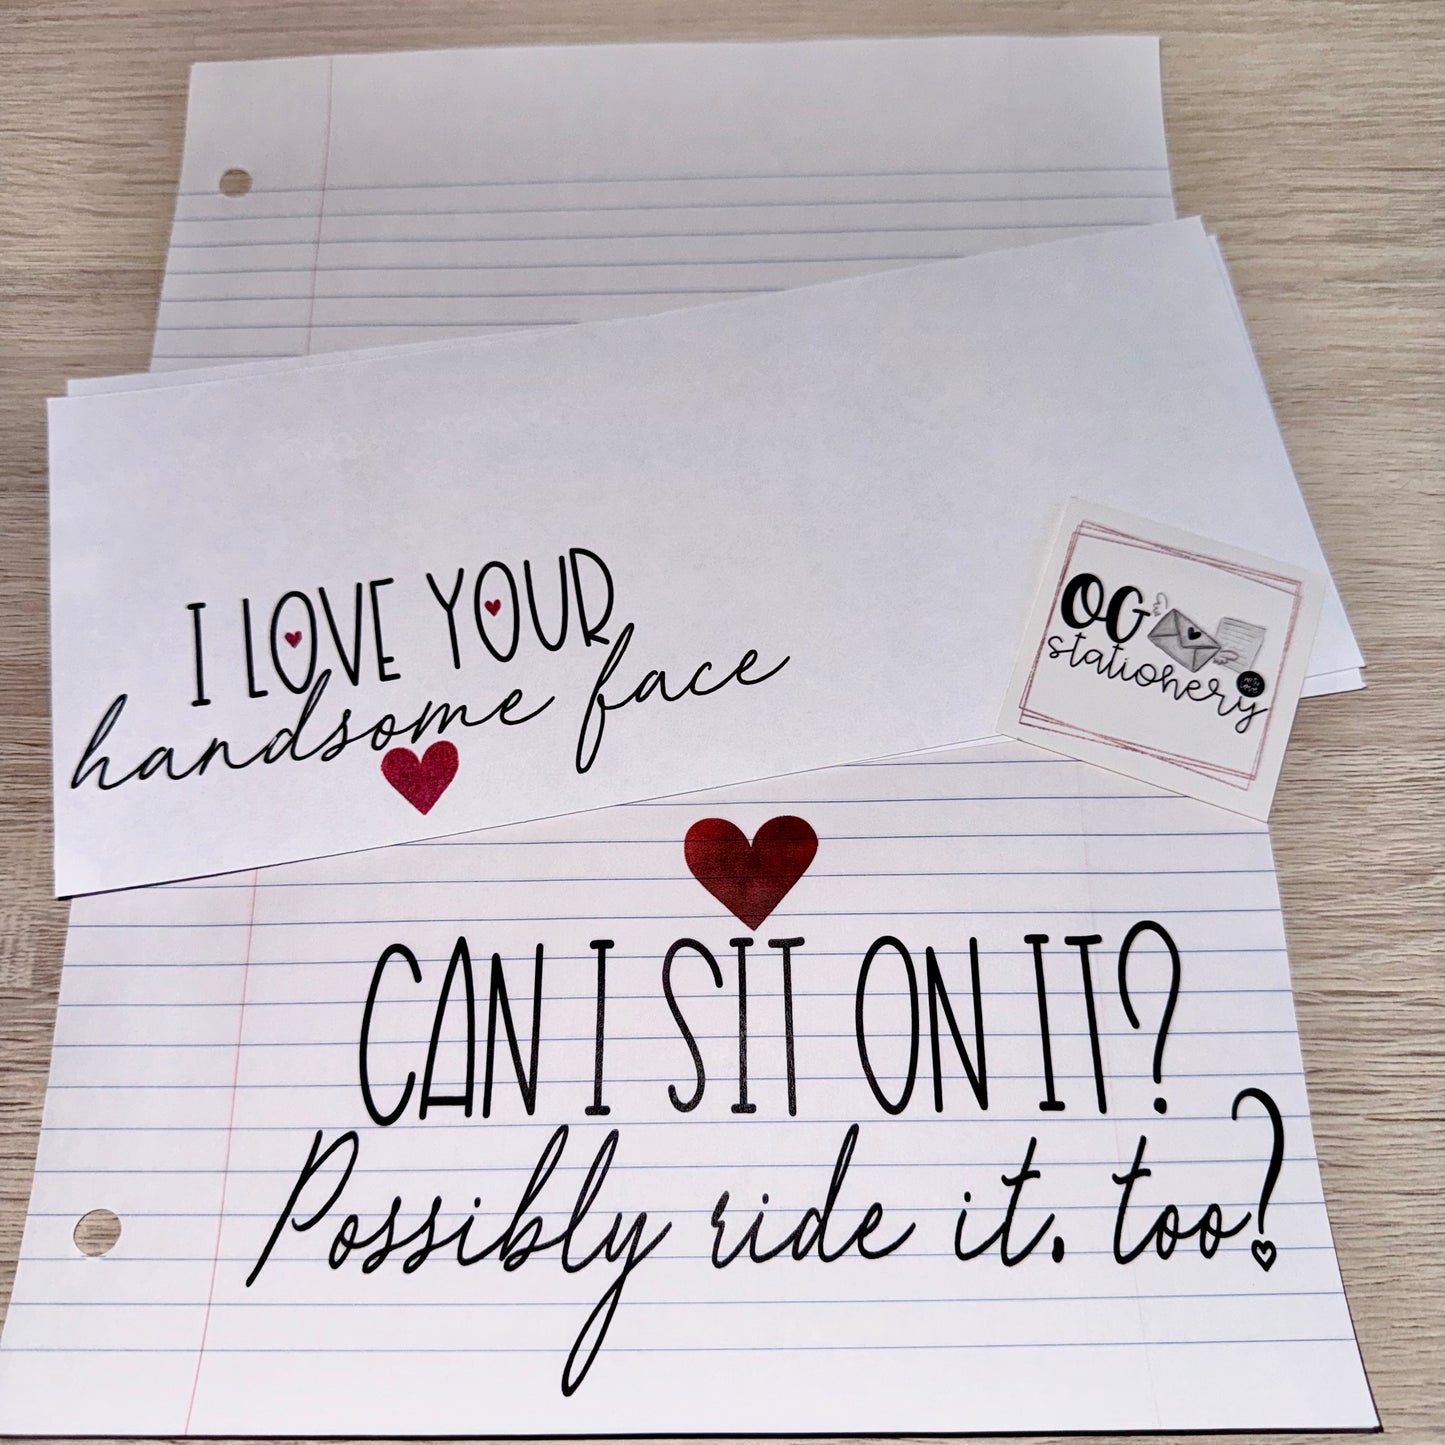 I LOVE YOUR
handsome face
OG
stationery
with
love
CAN I SIT ON IT?
Possibly ride it. too?